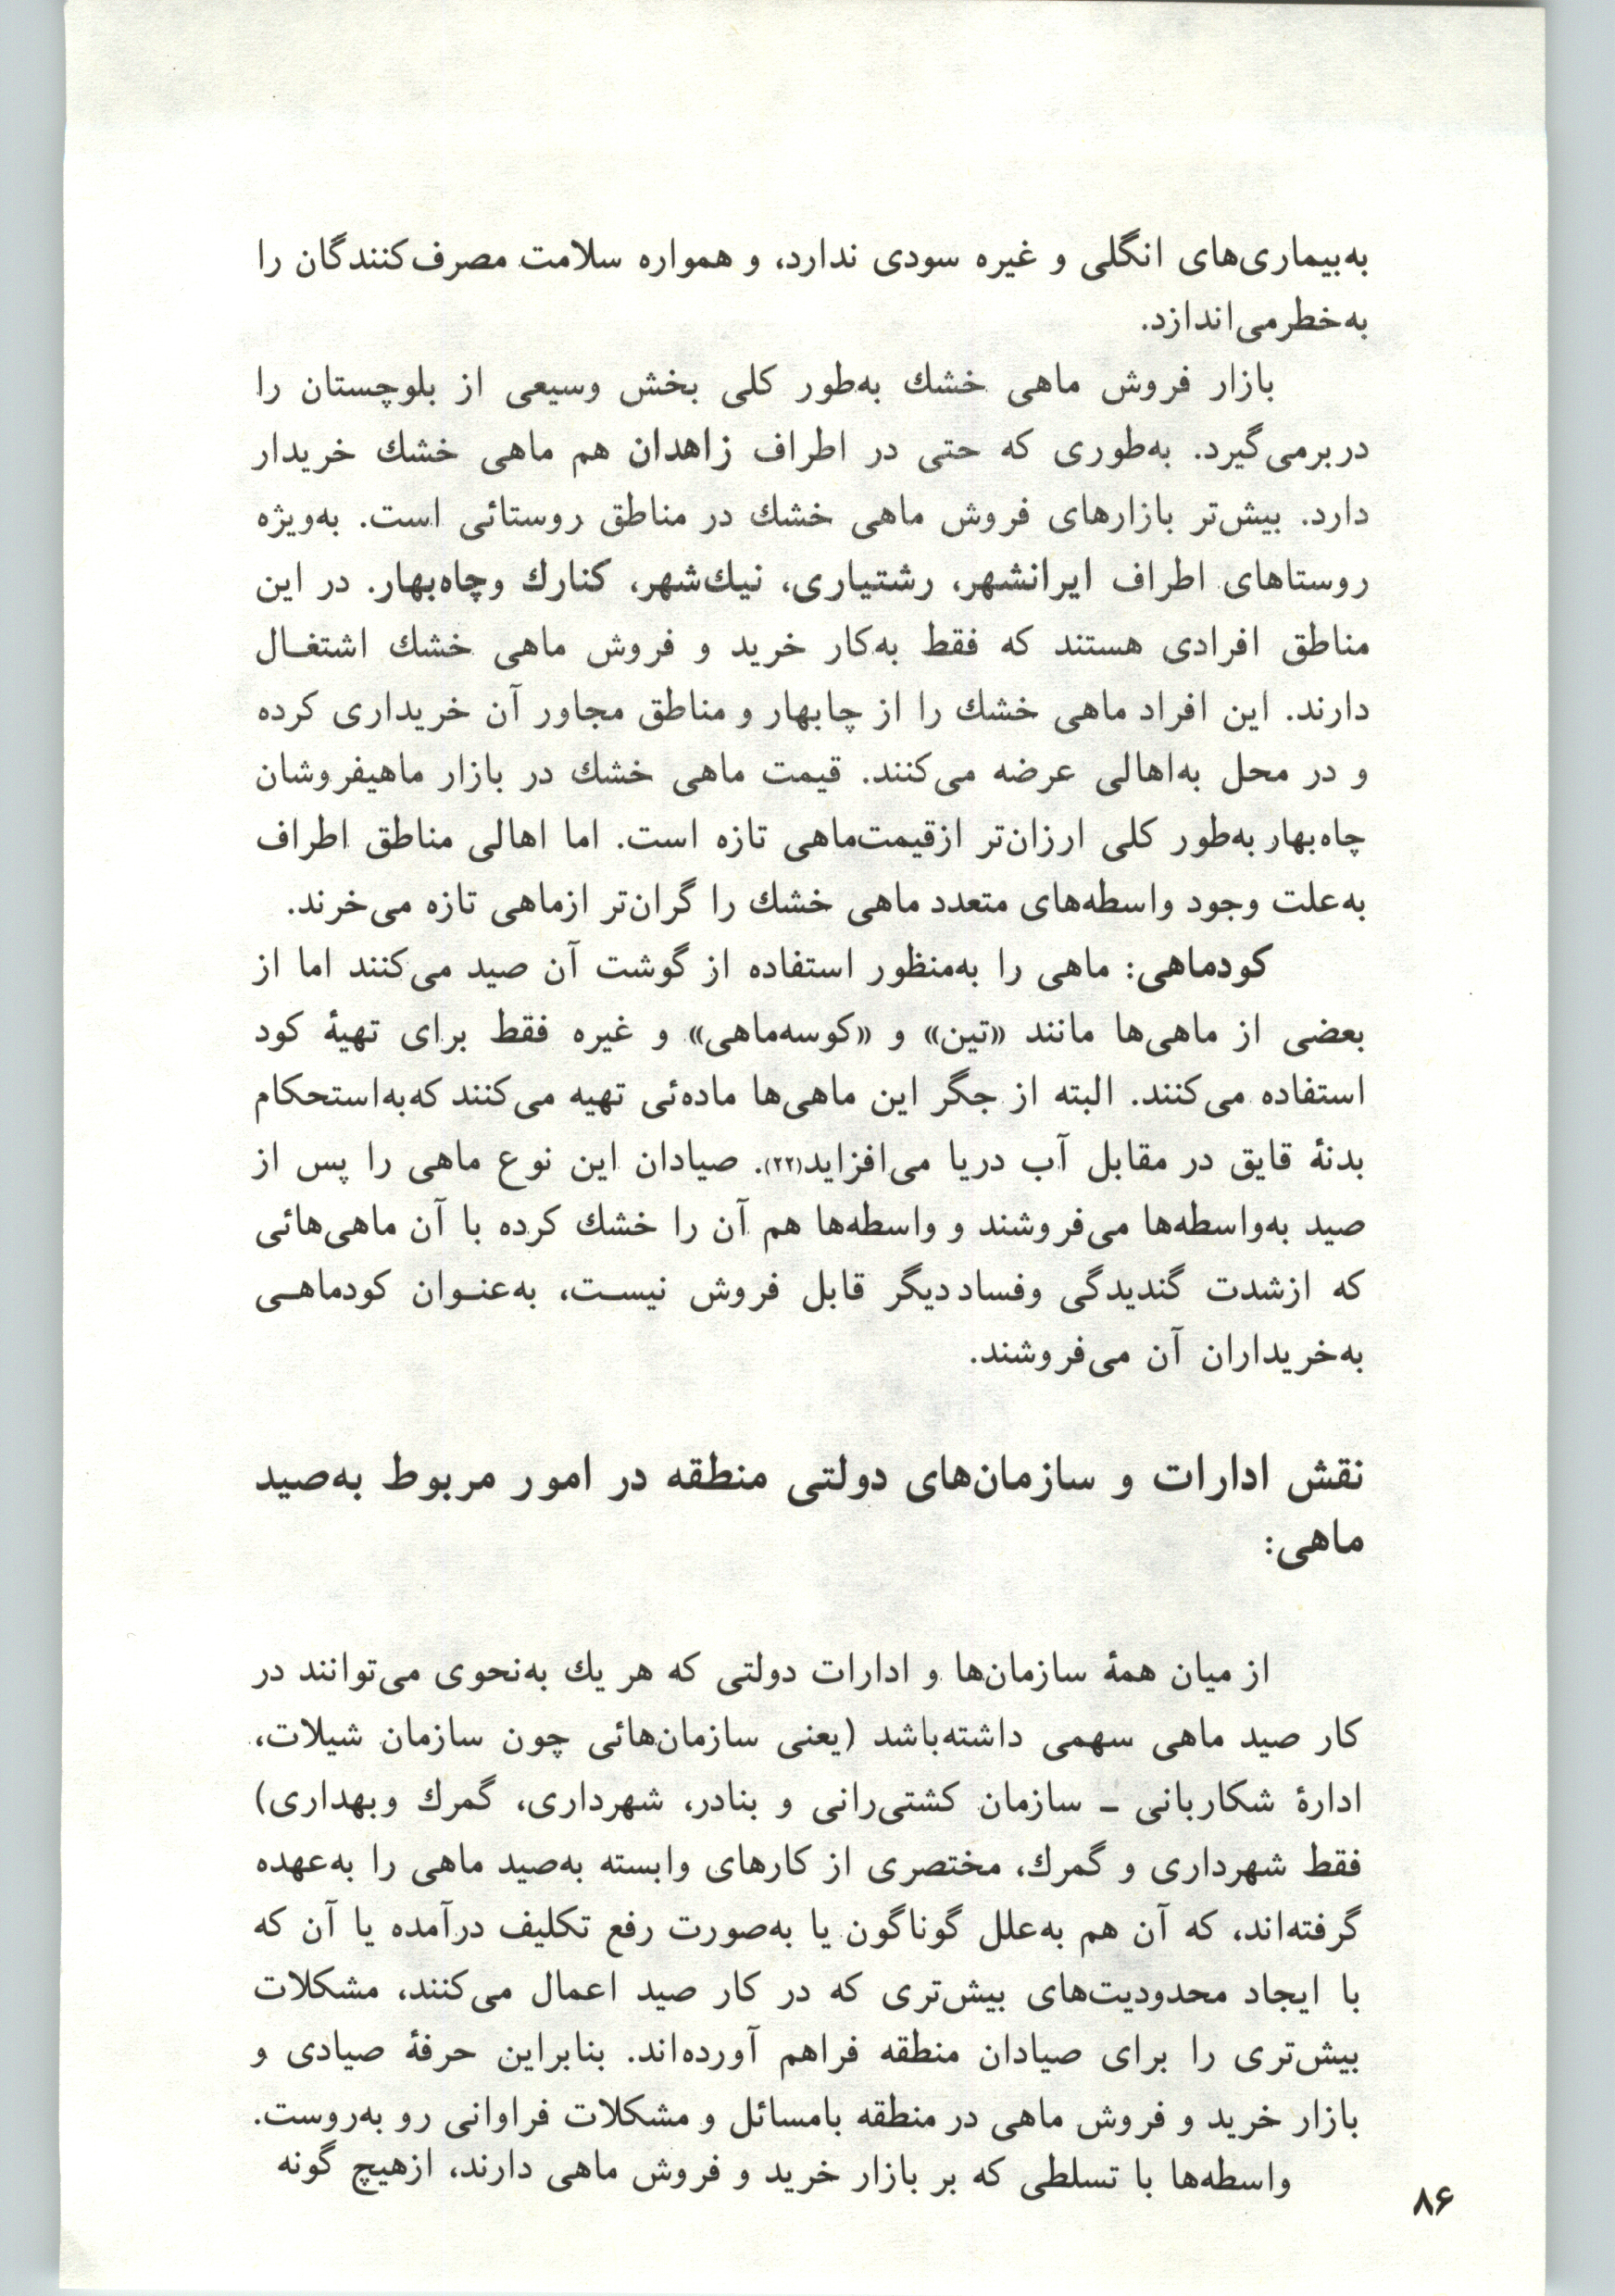 به‌بیماری‌های انگلی و غیره سودی ندارد، و همواره سلامت مصرف‌کنندگان را
به‌خطر می‌اندازد.
بازار فروش ماهی خشك به‌طور کلی بخش وسیعی از بلوچستان را
دربرمی‌گیرد. به‌طوری که حتی در اطراف زاهدان هم ماهی خشك خریدار
دارد. بیش‌تر بازارهای فروش ماهی خشك در مناطق روستائی است. به‌ویژه
روستاهای اطراف ایرانشهر، رشتیاری، نیك‌شهر، کنارك وچاه‌بهار. در این
مناطق افرادی هستند که فقط به‌کار خرید و فروش ماهی خشك اشتغـال
دارند. این افراد ماهی خشك را از چابهار و مناطق مجاور آن خریداری کرده
و در محل به‌اهالی عرضه می‌کنند. قیمت ماهی خشك در بازار ماهیفروشان
چاه‌بهار به‌طور کلی ارزان‌تر ازقیمت‌ماهی تازه است. اما اهالی مناطق اطراف
به‌علت وجود واسطه‌های متعدد ماهی خشك را گران‌تر ازماهی تازه می‌خرند.
کودماهی: ماهی را به‌منظور استفاده از گوشت آن صید می‌کنند اما از
بعضی از ماهی‌ها مانند «تین» و «کوسه‌ماهی» و غیره فقط برای تهیهٔ کود
استفاده می‌کنند. البته از جگر این ماهی‌ها ماده‌ئی تهیه می‌کنند که‌به‌استحکام
بدنهٔ قایق در مقابل آب دریا می‌افزاید(۲۲). صیادان این نوع ماهی را پس از
صید به‌واسطه‌ها می‌فروشند و واسطه‌ها هم آن را خشك کرده با آن ماهی‌هائی
که ازشدت گندیدگی وفساد دیگر قابل فروش نیسـت، به‌عنـوان کودماهـی
به‌خریداران آن می‌فروشند.
نقش ادارات و سازمان‌های دولتی منطقه در امور مربوط به‌صید
ماهی:
از میان همهٔ سازمان‌ها و ادارات دولتی که هر یك به‌نحوی می‌توانند در
کار صید ماهی سهمی داشته‌باشد (یعنی سازمان‌هائی چون سازمان شیلات،
ادارهٔ شکاربانی ـ سازمان کشتی‌رانی و بنادر، شهرداری، گمرك وبهداری)
فقط شهرداری و گمرك، مختصری از کارهای وابسته به‌صید ماهی را به‌عهده
گرفته‌اند، که آن هم به‌علل گوناگون یا به‌صورت رفع تکلیف درآمده یا آن که
با ایجاد محدودیت‌های بیش‌تری که در کار صید اعمال می‌کنند، مشکلات
بیش‌تری را برای صیادان منطقه فراهم آورده‌اند. بنابراین حرفهٔ صیادی و
بازار خرید و فروش ماهی در منطقه بامسائل و مشکلات فراوانی رو به‌روست.
واسطه‌ها با تسلطی که بر بازار خرید و فروش ماهی دارند، ازهیچ گونه
۸۶